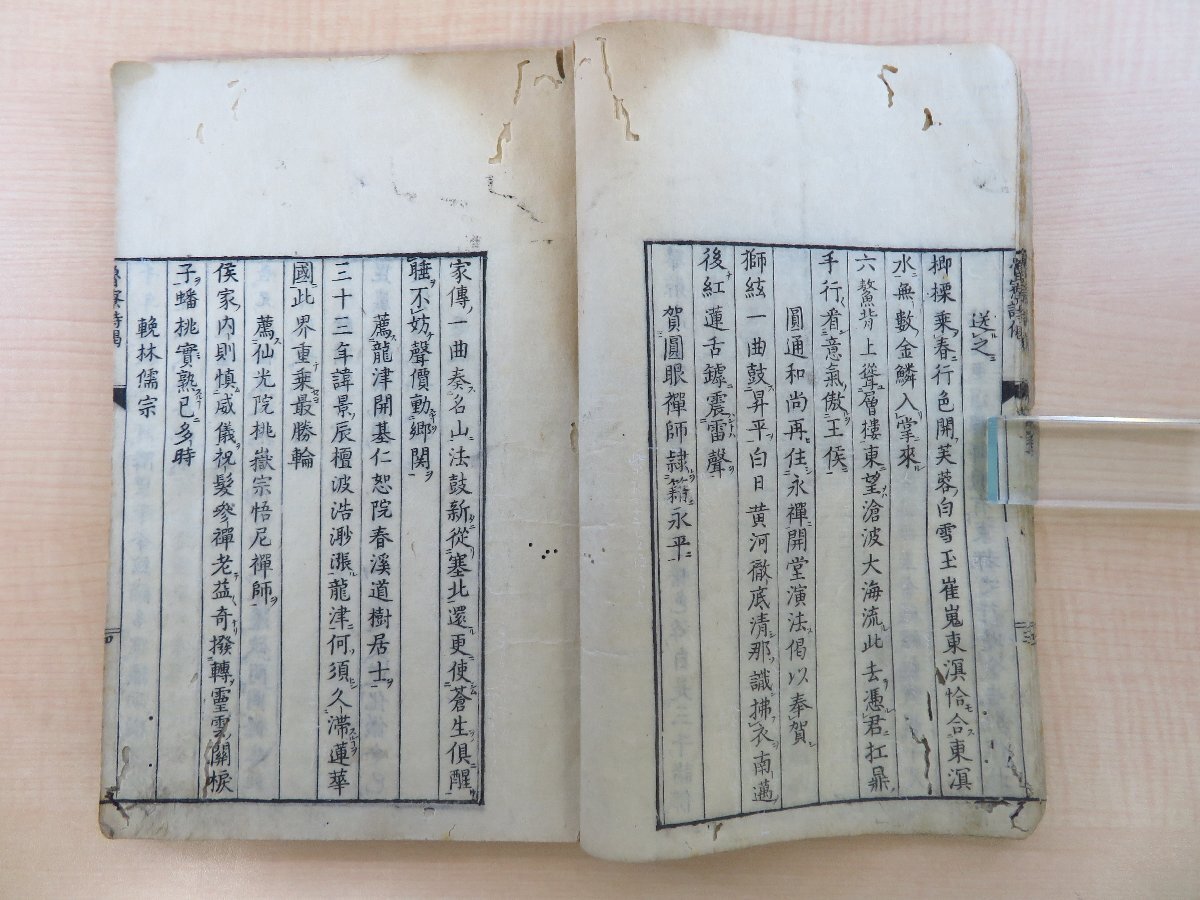 送之
楖檪乘春行色開芙蓉白雪玉崔嵬東溟恰合東溟
水無數金鱗入掌來
六鰲背上聳層樓東望滄波大海流此去憑君扛鼎
手行看意氣傲王侯
圓通和尚再住永禪開堂演法偈以奉賀
獅絃一曲鼓昇平白日黄河徹底清那識拂衣南邁
後紅蓮舌罅震雷聲
賀圓眼禪師隷籍永平
家傳一曲奏名山法鼓新從塞北還更使蒼生倶醒
睡不妨聲價動郷関
薦龍津開基仁恕院春溪道樹居士
三十三年諱景辰檀波浩渺漲龍津何須久滯蓮華
國此界重乘最勝輪
薦仙光院桃嶽宗悟尼禪師
侯家内則慎威儀祝髮參禪老益奇撥轉靈雲關棙
子蟠桃實熟已多時
輓林儒宗